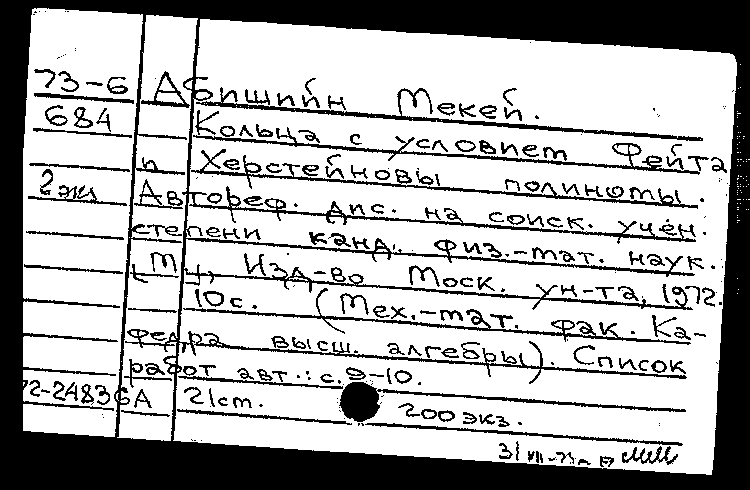 73-6 Абишийн Мекей.
684 Кольца с условием Фейта
и Херстейновы полиномы.
2 экз Автореф. дис. на соиск. учён.
степени канд. физ.-мат. наук.
[М.], Изд-во Моск. ун-та, 1972.
10 с. (Мех.-мат. фак. Ка-
федра высш. алгебры). Список
работ авт.: с. 9-10.
72-24836А 21 cm. 200 экз.
31 VII-73